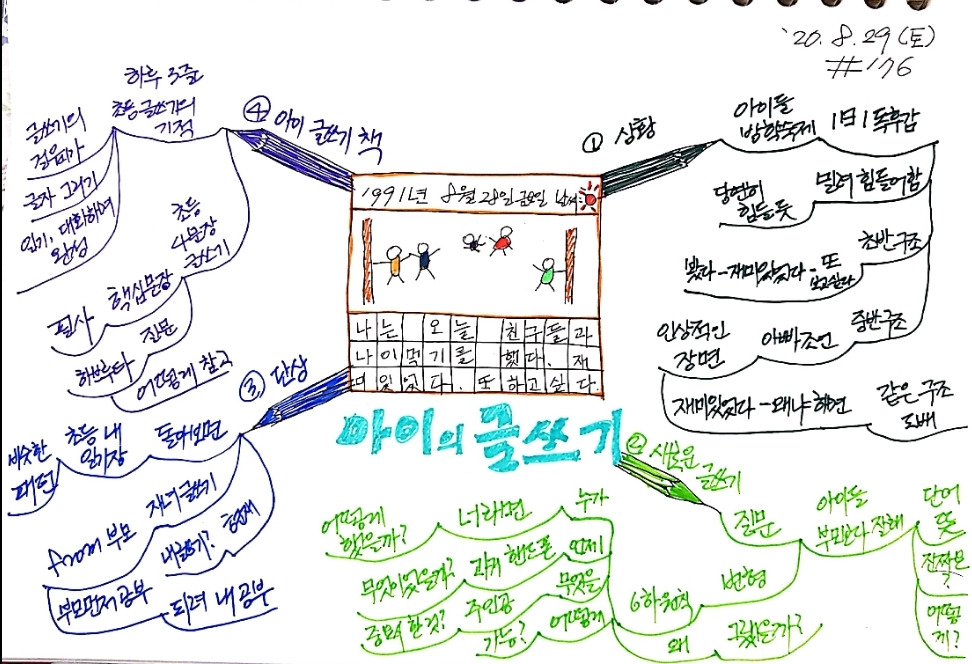 '20. 8. 29 (토)
#176
① 상황
아이들
방학숙제
1日1독후감
당연히
힘들 듯
밀려 힘들어함
초반구조
봤다-재미있었다-또
보고싶다
중반구조
인상적인
장면
아빠 조언
재미있었다-왜냐하면
같은 구조
도배
1991년 8월 28일 금요일 날씨:
나는 오늘 친구들과
했다. 재
미있었다. 또 하고 싶다.
아이의 글쓰기
② 새로운
글쓰기
질문
아이들
부모보다 잘해
단어
뜻
어떻
게?
변형
6하원칙
누가
너라면
어떻게
했을까?
언제
과거 핸드폰
무엇이었을까?
무엇을
주인공
가능?
중요한 것?
어떻게
왜
그랬을까?
③ 단상
돌아보면
초등 내
일기장
비슷한
패턴
자녀 글쓰기
from 부모
내글쓰기?
현재
부모먼저 공부
되려 내 공부
④ 아이 글쓰기 책
하루 3줄
초등 글쓰기의
기적
글쓰기의
걸음마가
글자 그리기
읽기, 대화하며
완성
초등
4문장
글쓰기
핵심문장
필사
질문
하브루타
어떻게 참고